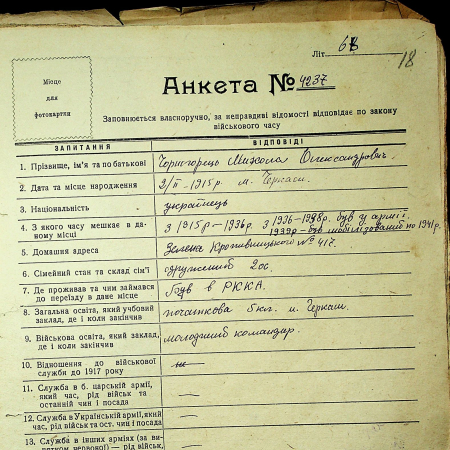 Літ. 68
18
Місце
для
фотокартки
Анкета № 4237
Заповнюється власноручно, за неправдиві відомості відповідає по закону
військового часу
ЗАПИТАННЯ
ВІДПОВІДІ
1. Прізвище, ім'я та по батькові
Чорногорець Микола Олександрович.
2. Дата та місце народження
2/II-1915р. м. Черкаси.
3. Національність
українець
4. З якого часу мешкає в да-
ному місці
з 1915р-1936р. з 1936-1938р. був у армії.
1939р-був мобілізований по 1941р.
5. Домашня адреса
Кропивницького № 417.
6. Сімейний стан та склад сім'ї
одружений 2ос.
7. Де проживав та чим займався
до переїзду в дане місце
Був в РККА.
8. Загальна освіта, який учбовий
заклад, де і коли закінчив
початкова 5кл. м. Черкаси.
9. Військова освіта, який заклад,
де і коли закінчив
молодший командир.
10. Відношення до військової
служби до 1917 року
11. Служба в б. царській армії,
який час, рід військ та
останній чин і посада
—
12. Служба в Українській армії, який
час, рід військ та ост. чин і посада
—
13. Служба в інших арміях (за ви-
нятком червоної) — рід військ,
—